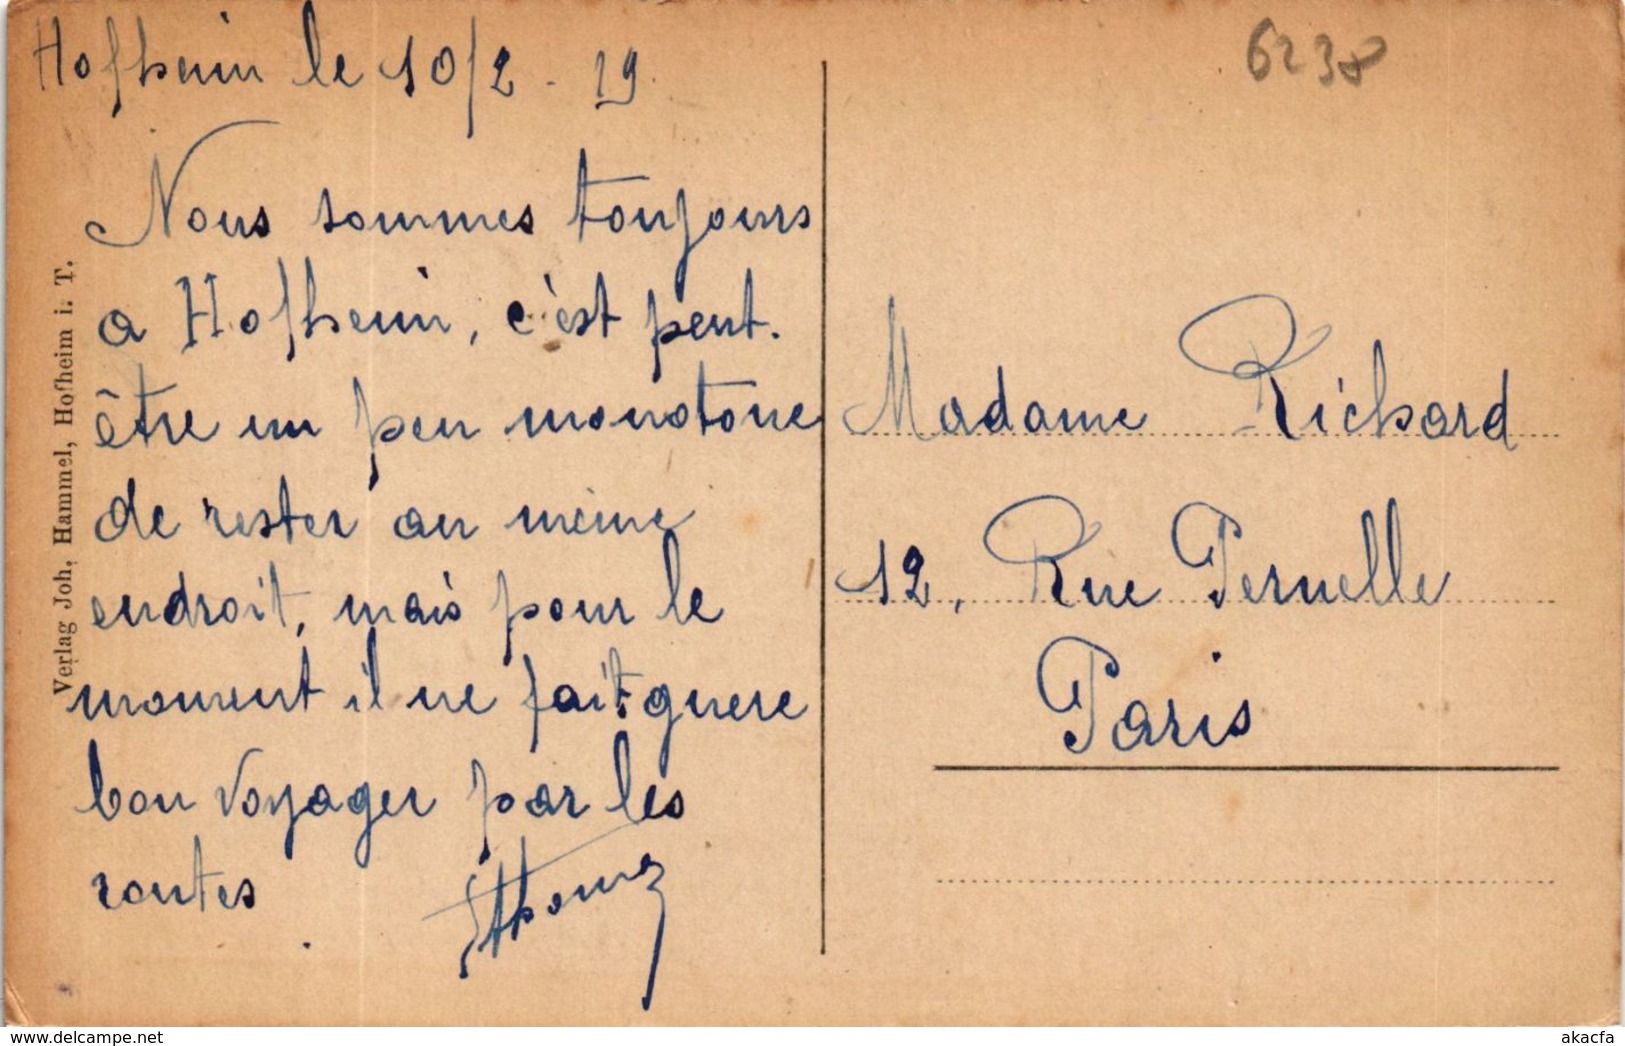 Hofheim le 10/2 - 19.
6238
Nous sommes toujours
a Hofheim, c'est peut.
être un peu monotone
de rester au même
endroit, mais pour le
moment il ne fait guere
bon voyager par les
routes
Madame Richard
12, Rue Pernelle
Paris
Verlag Joh. Hammel, Hofheim i. T.
akacfa
https://www.delcampe.net